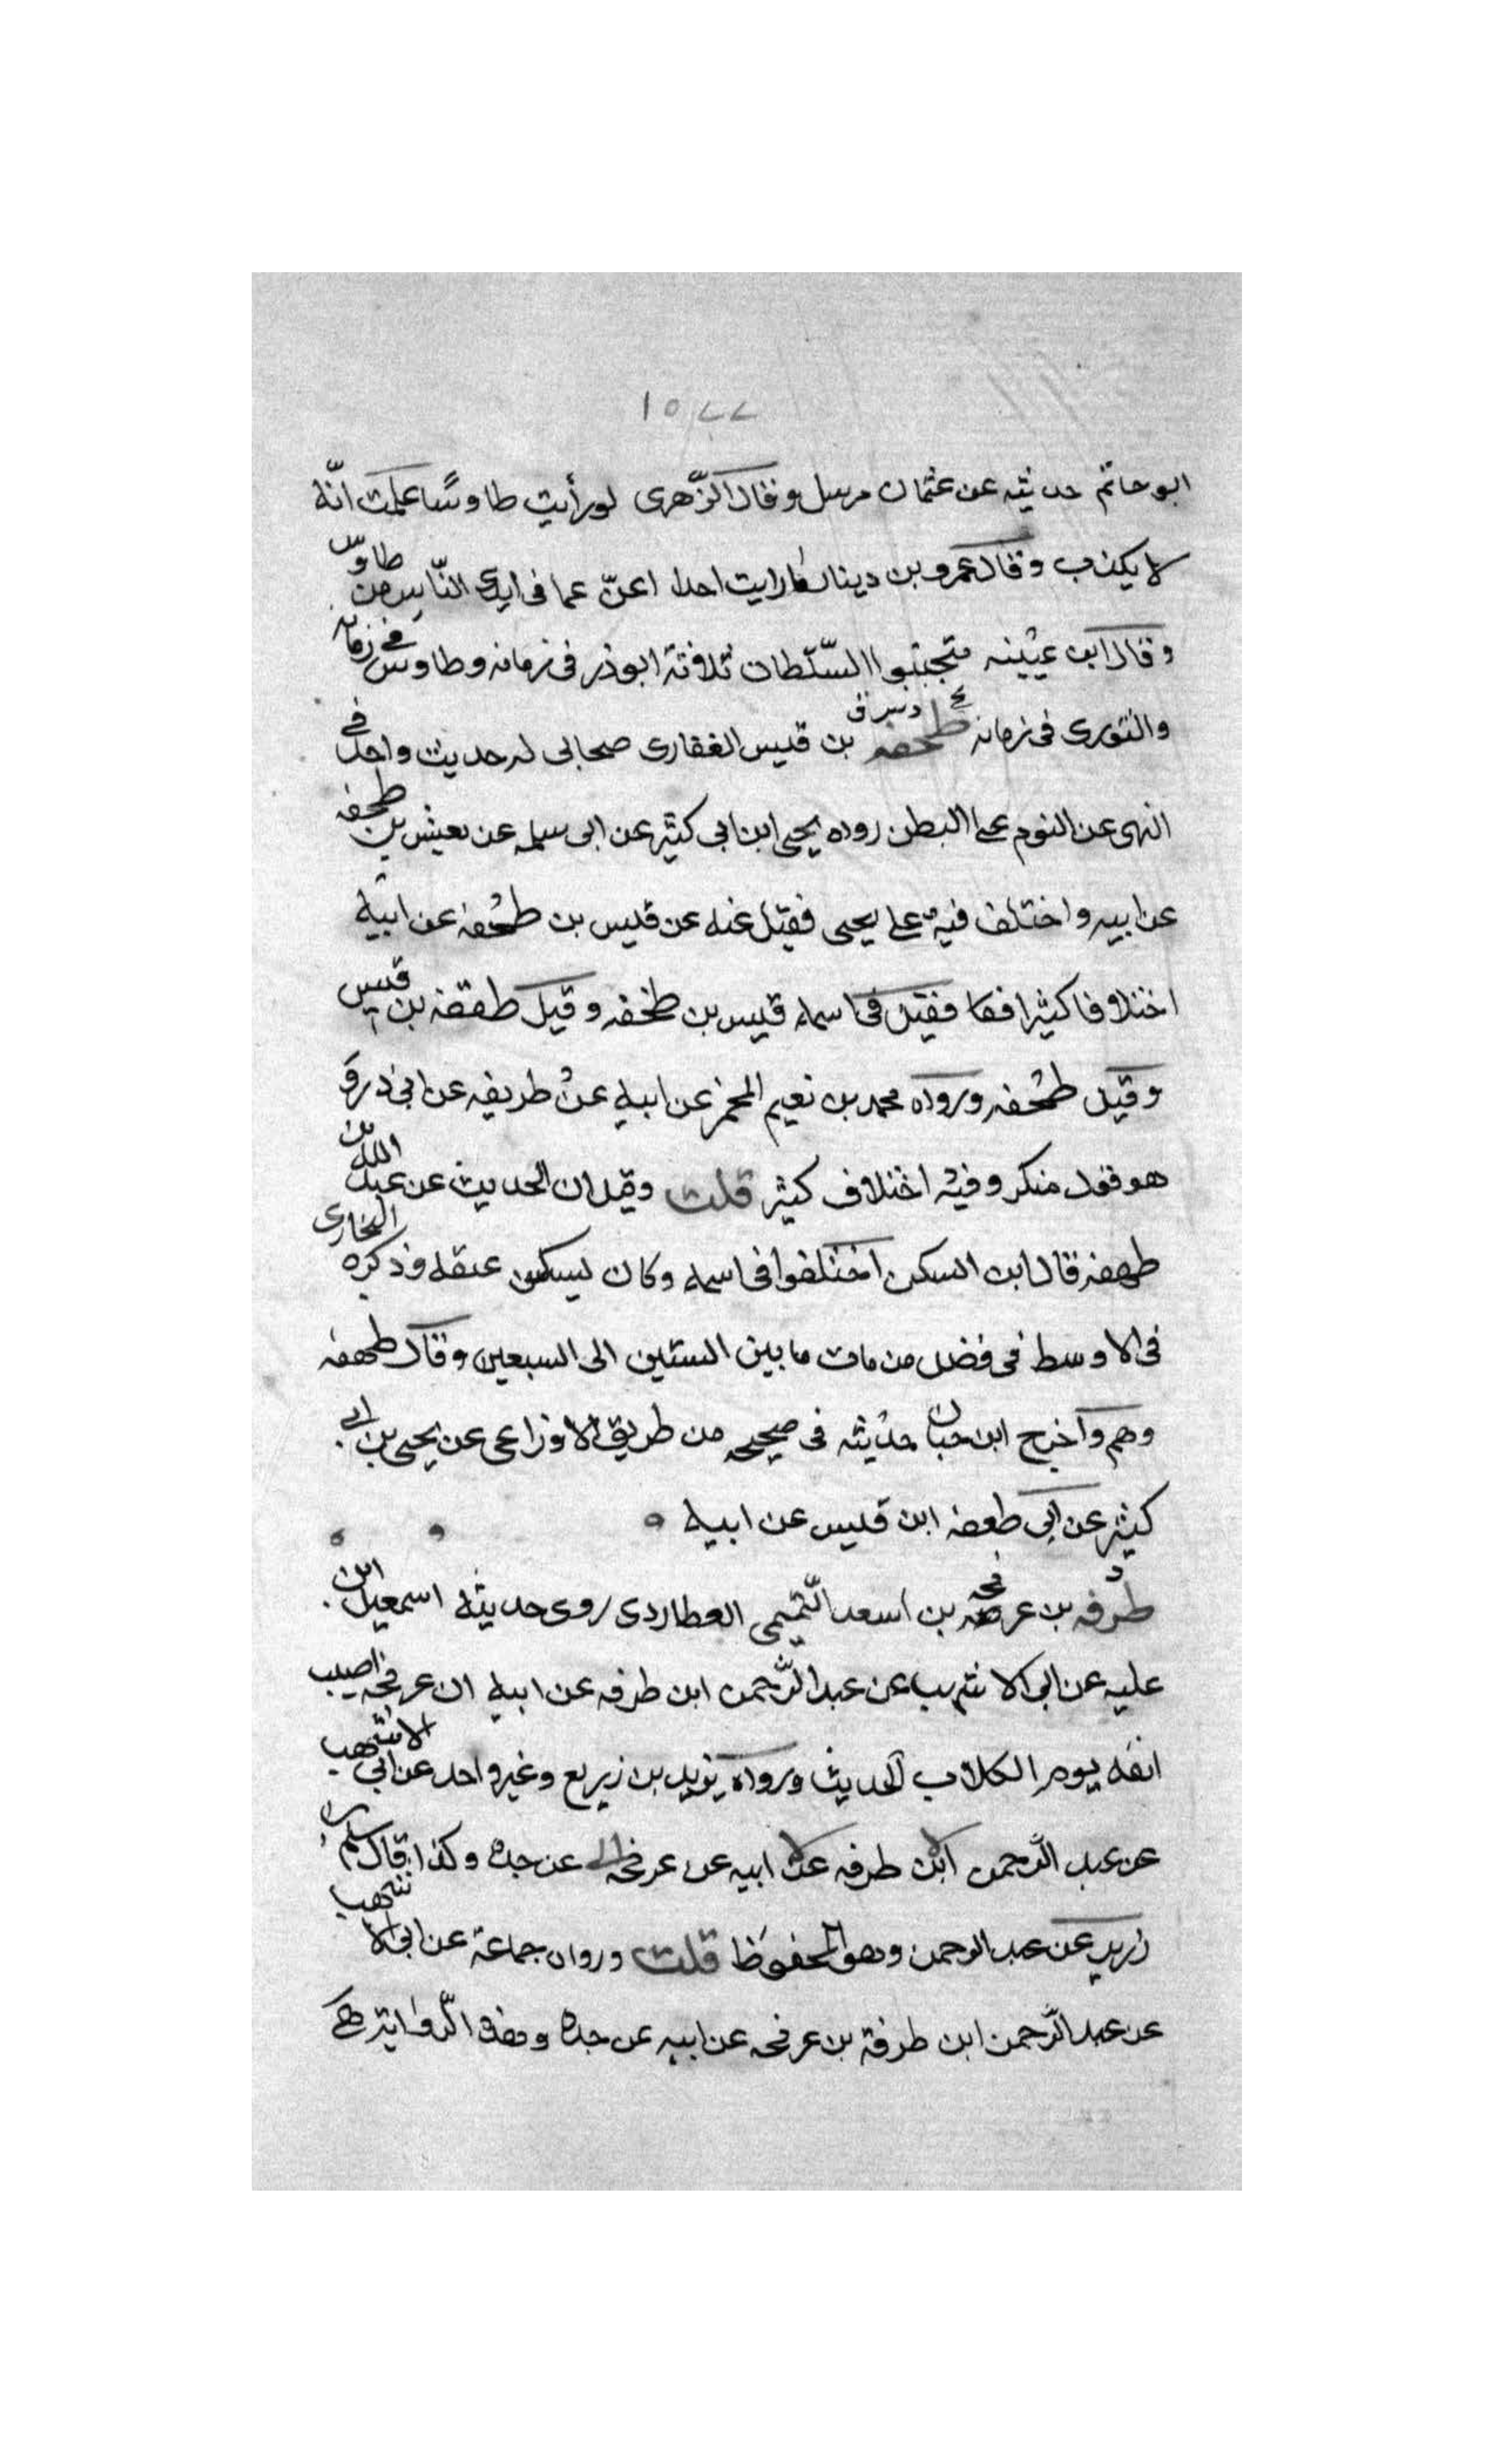 ١٥٧٧
ابو حاتم حديثه عن عثمان مرسل وقال الزّهرى لو رأيت طاوسًا علمت انّه
لا يكذب وقال عمرو بن دينار ما رايت احدا اعفّ عما فى ايدى النّاس من طاوس
وقال ابن عيينه متجنبوا السّلطان ثلاثة ابو ذر فى زمانه وطاوس فى زمانه
والثورى فى زمانه طخفه بن قيس الغفارى صحابى له حديث واحد فى
النهى عن النوم على البطن رواه يحيى ابن ابى كثير عن ابى سلمه عن يعيش بن طخفه
عن ابيه واختلف فيه على يحيى فقيل عنه عن قيس بن طخفه عن ابيه
اختلافا كثيرا فقيل فى اسمه قيس بن طخفه وقيل طقفه بن قيس
وقيل طخفه ورواه محمد بن نعيم المجمر عن ابيه عن طريفه عن ابى ذر و
هو فقد منكر وفيه اختلاف كثير قلت وقيل ان الحديث عن عبد الله بن
طهفه قال ابن السكن اختلفوا فى اسمه وكان يسكن عتقه وذكره البخارى
فى الاوسط فى فضل من مات ما بين الستين الى السبعين وقال طهفه
وهم واخرج ابن حبان حديثه فى صحيحه من طريق الاوزاعى عن يحيى بن ابى
كثير عن ابى طعفه ابن قيس عن ابيه
طرفه بن عرفجه بن اسعد التّميمى العطاردى روى حديثه اسمعيل ابن
عليه عن ابى الاشهب عن عبد الرّحمن ابن طرفه عن ابيه ان عرفجه اصيب
انفه يوم الكلاب الحديث ورواه يزيد بن زريع وغير واحد عن ابى الاشهب
عن عبد الرّحمن ابن طرفه عن ابيه عن عرفجه عن جده وكذا قال سلم بن
زرير عن عبد الرحمن وهو المحفوظ قلت ورواه جماعة عن ابى الاشهب
عن عبد الرّحمن ابن طرفة بن عرفجه عن ابيه عن جده وهذه الرّواية